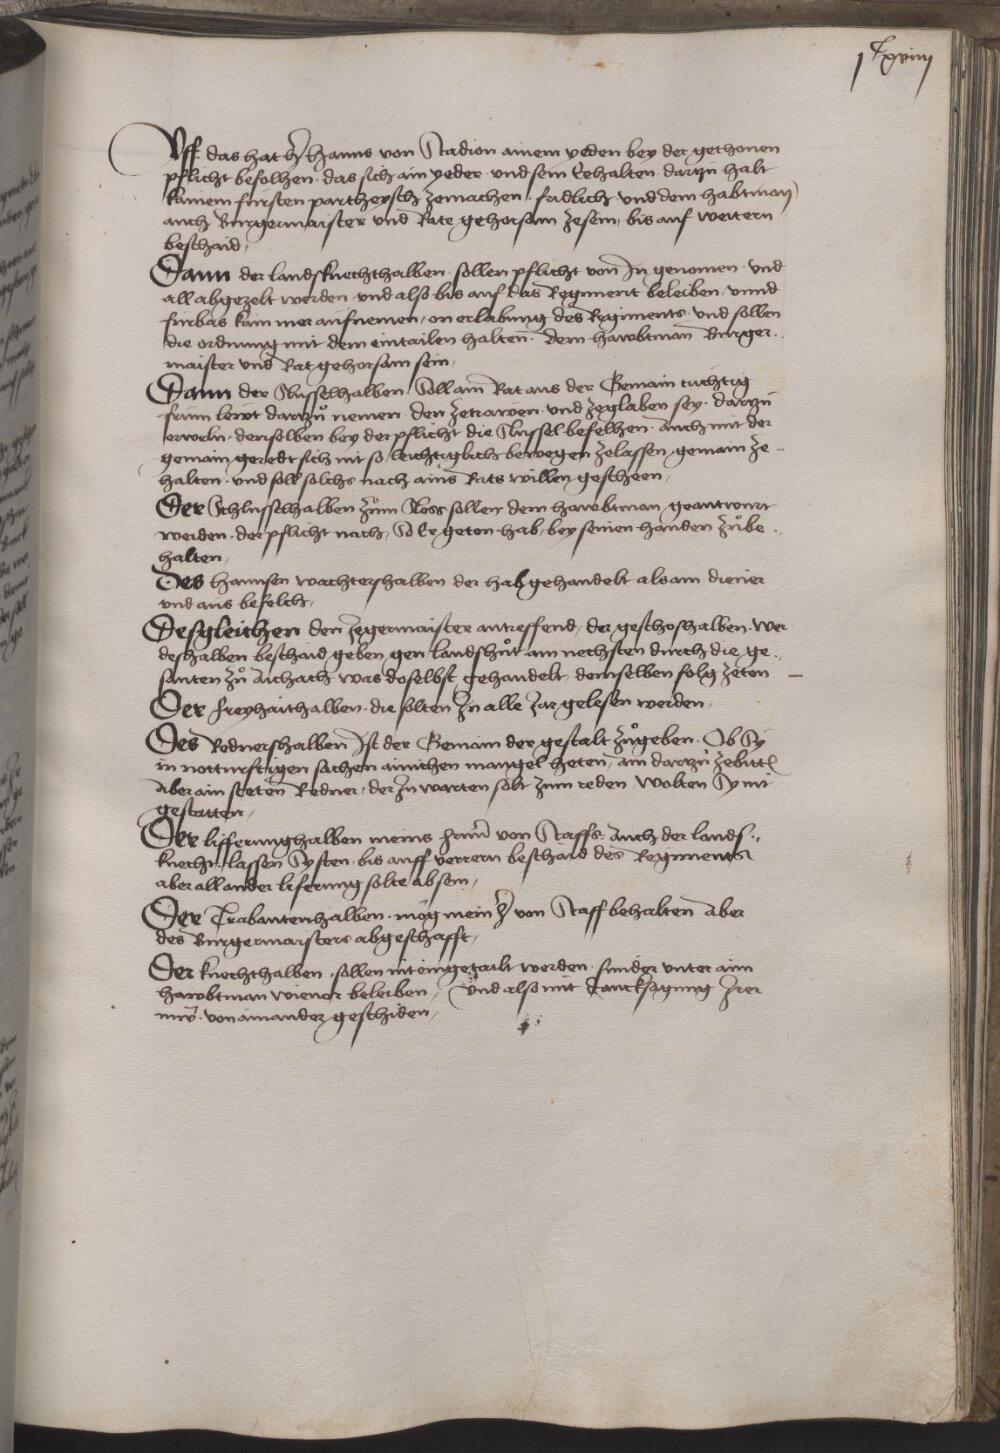 jᶜxviiij
Uff das hat her Hanns von Stadion ainem yeden bey der gethonen
pflicht befolhen. das sich ain yeder. und sein Eehalten. daryn halt
kainem fürsten partheysch zemachen. fridlich und dem habtman
auch Burgermaister und Rate gehorsam zesein, bis auf weitern
beschaid,
Dann der landsknechthalben. sollen pflicht von In genomen. und
all abgezelt werden. und also bis auf das Regiment beleiben. unnd
fürbas kain mer aufnemen. on erlabung des Regiments. und sollen
die ordnung mit dem eintailen halten. dem hawbtman Burger..
maister und Rat gehorsam sein,
Dann der Slusselhalben. Soll ain Rat aus der Gemain tuchtig
frum lewt dartzů nemen. den zetrawen. und zeglaben sey. dartzu
erweln. denselben bey der pflicht die Slussel befelhen. Auch mit der
gemain geredt sich nit so leichtiglich bewegen zelassen, gemain ze..
halten. und soll solchs nach ains Rats willen gescheen,
Der Schlusselhalben zům Sloss sollen dem hawbtman geantwurt
werden. der pflicht nach, So Er geton hab, bey seinen handen zůbe..
halten,
Des hannsen wachtershalben der hab gehandelt als ain diener
und aus befelch,
Desgleichen den zegermaister antreffend, der geschoshalben. wer
deshalben beschaid geben gen landshůt. am nechsten durch die ge..
santen zů Aichach was doselbst gehandelt, demselben folg zeton –
Der freyhaithalben. die solten Jn alle Jar gelesen werden,
Des Rednershalben Ist der Gemain der gestalt zůgeben. Ob Sy
in notturftigen sachen ainichen mangel heten, ain dartzu zebitten
Aber ain steten Redner, der Jn warten solt zum reden wolten Sy nit
gestatten,
Der lifferunghalben meins herrn von Staffs. Auch der lands..
knecht. lassen Sy sten. bis auff verrern beschaid des Regiments
aber all ander liferung solte ab sein,
Der Trabantenhalben. mög mein her von Staff behalten Aber
des Burgermaisters abgeschafft,
Der knechthalben. sollen nit eingetailt werden. sunder unter aim
hawbtman wienor beleiben, Und also mit dancksagung Irer
mü. von ainander geschiden,